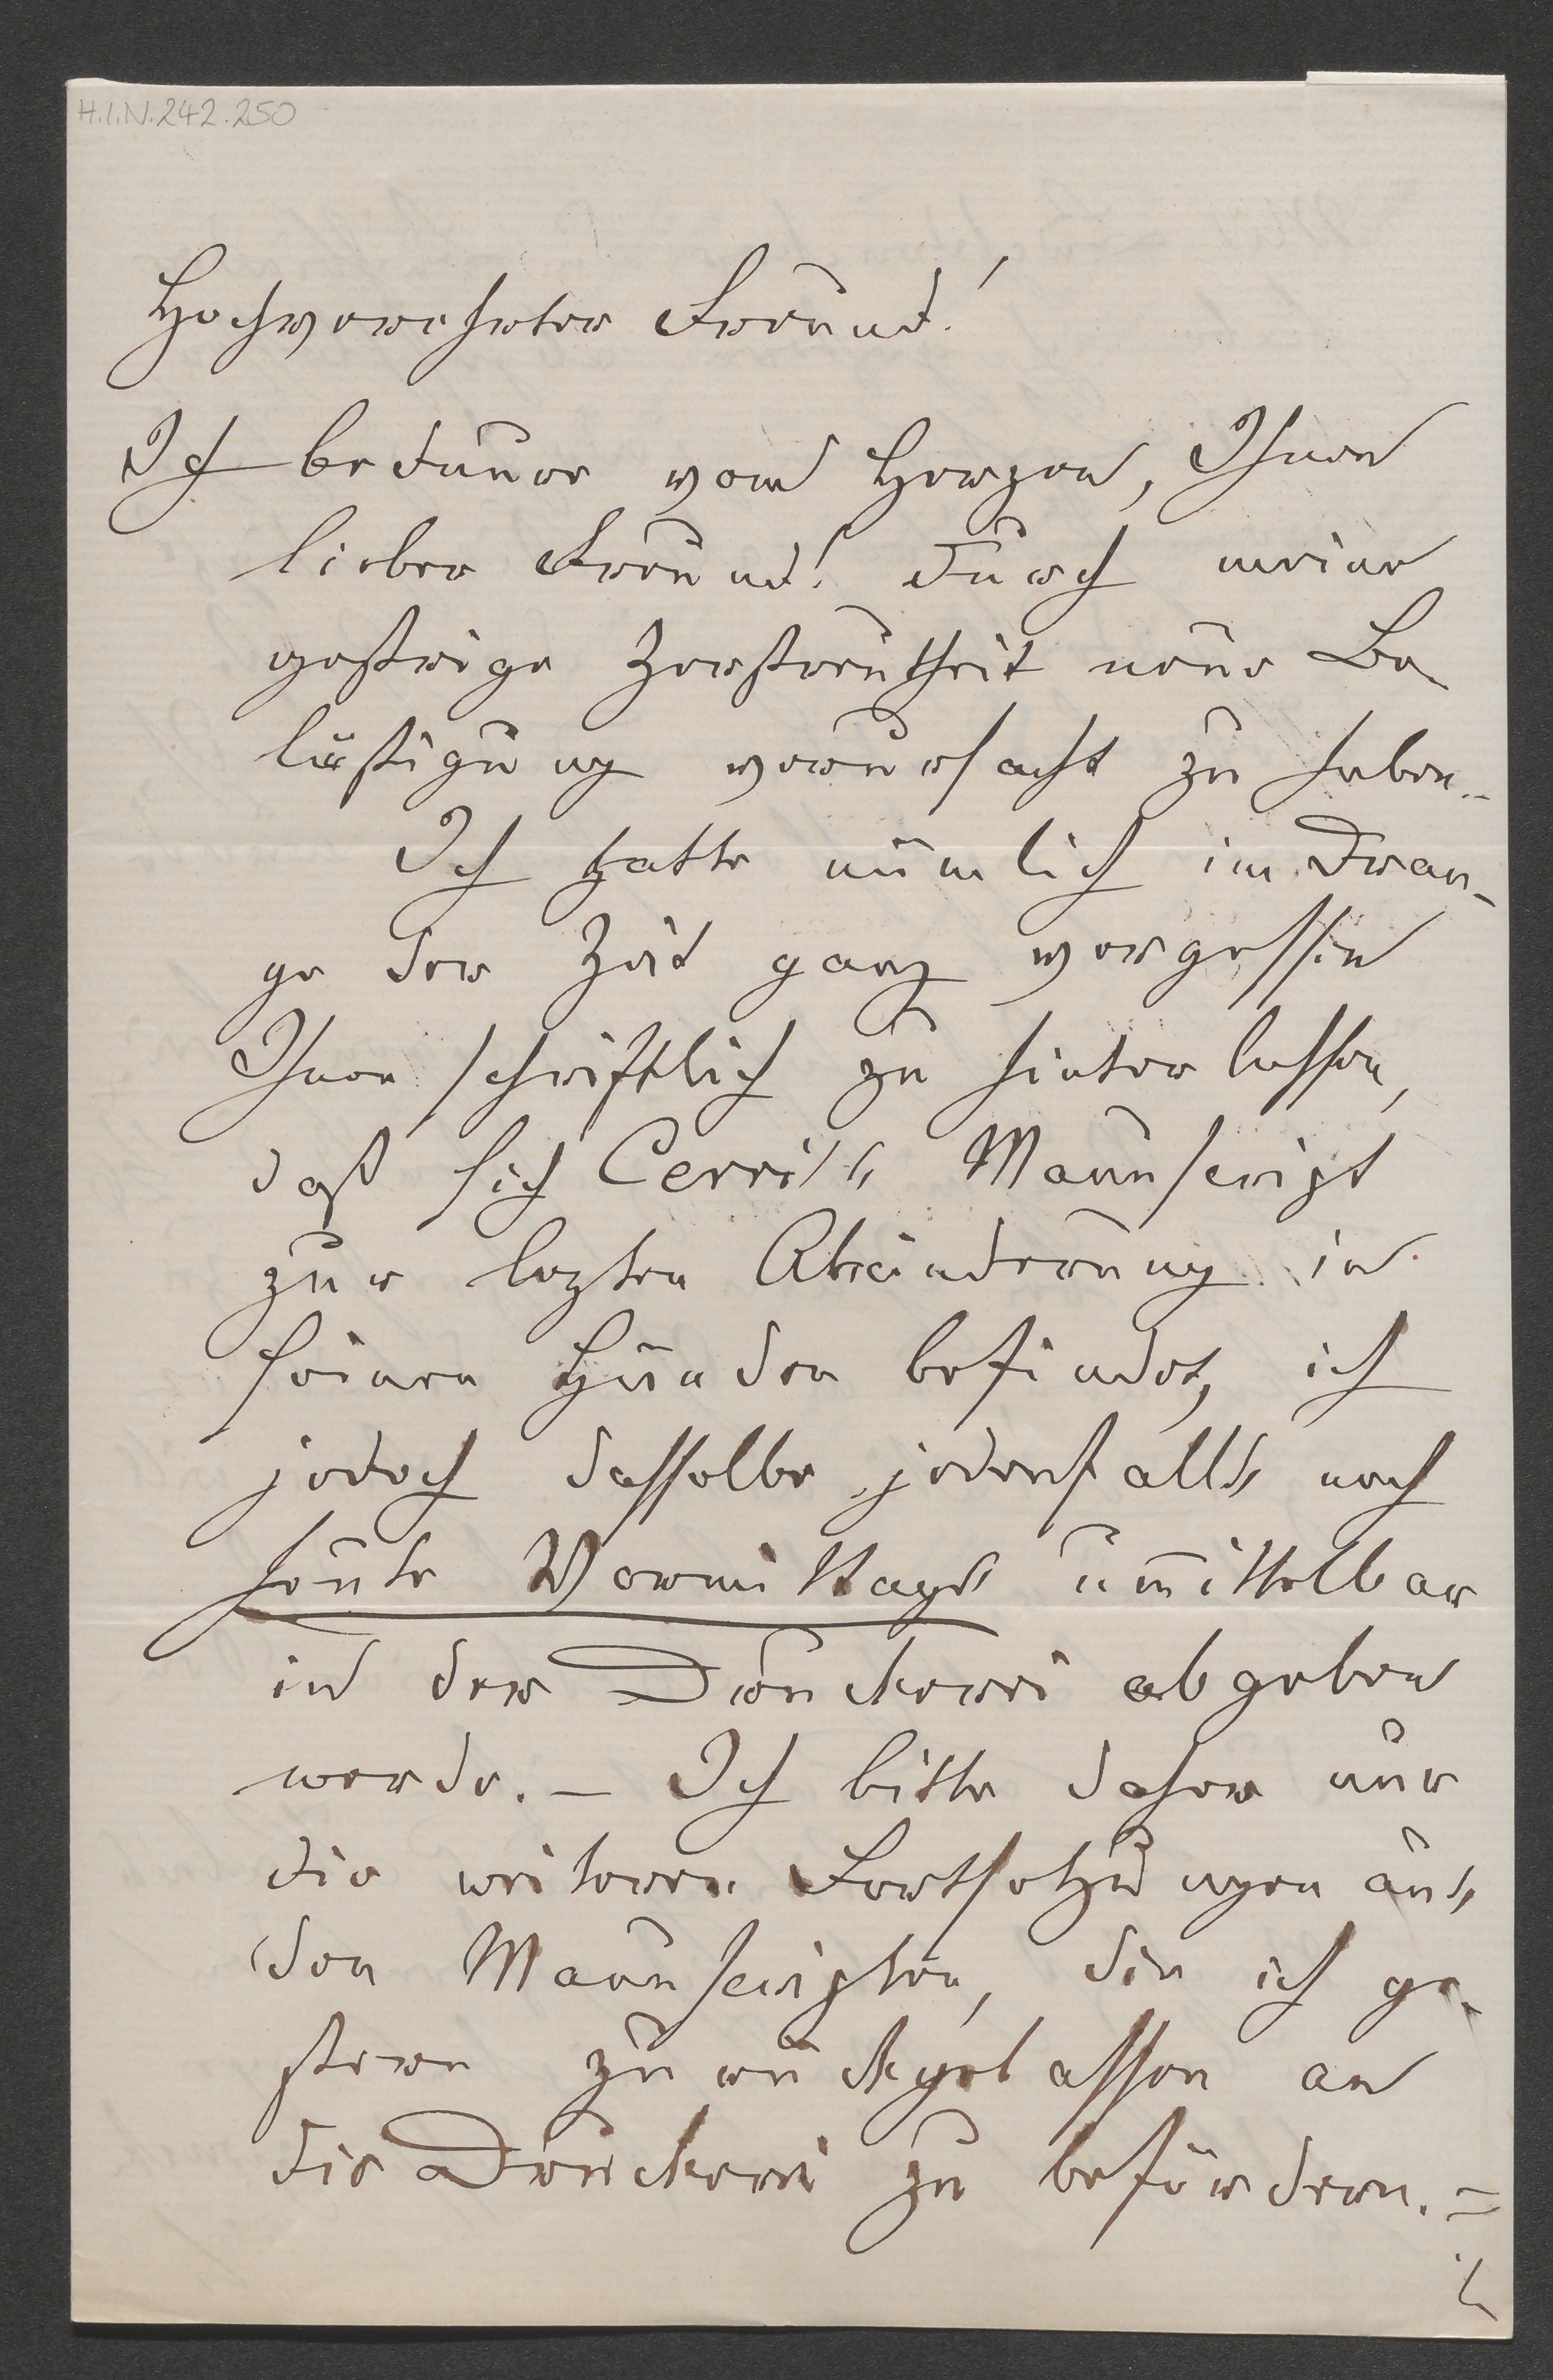 H.I.N. 242.250
Hochverehrter Freund!
Ich bedaure vom Herzen, Ihnen
lieber Freund! durch meine
gestrige Zerstreutheit neue Be
lästigung verursacht zu haben.–
Ich hatte nämlich im Dran-
ge der Zeit ganz vergessen
Ihnen schriftlich zu hinterlassen,
daß sich Cerri's Manuscript
zur lezten Abänderung in
seinen Händen befindet, ich
jedoch dasselbe jedenfalls noch
heute Vormittags unmittelbar
in der Druckerei abgeben
werde. – Ich bitte daher nur
die weiteren Fortsetzungen aus
den Manuscripten, die ich ge-
stern zurückgelassen an
die Druckerei zu befördern. =